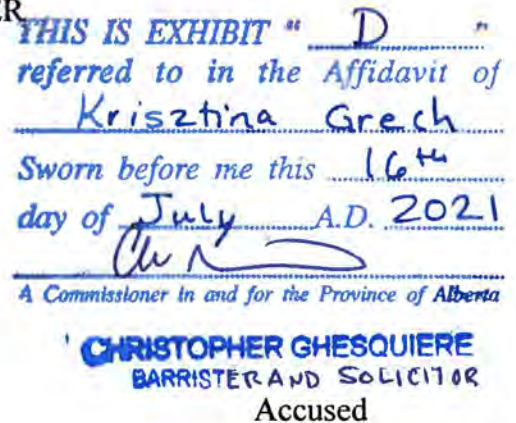 ER
THIS IS EXHIBIT " D "
referred to in the Affidavit of
Krisztina Grech
Sworn before me this 16th
day of July A.D. 2021
A Commissioner in and for the Province of Alberta
CHRISTOPHER GHESQUIERE
BARRISTER AND SOLICITOR
Accused